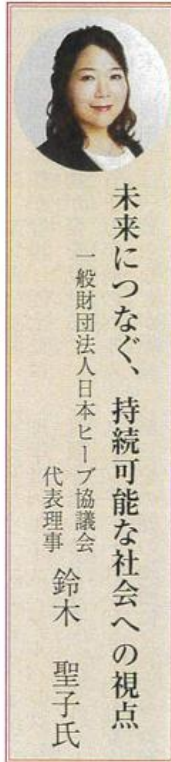 未来につなぐ、持続可能な社会への視点
一般財団法人日本ヒーブ協議会
代表理事　鈴木　聖子氏